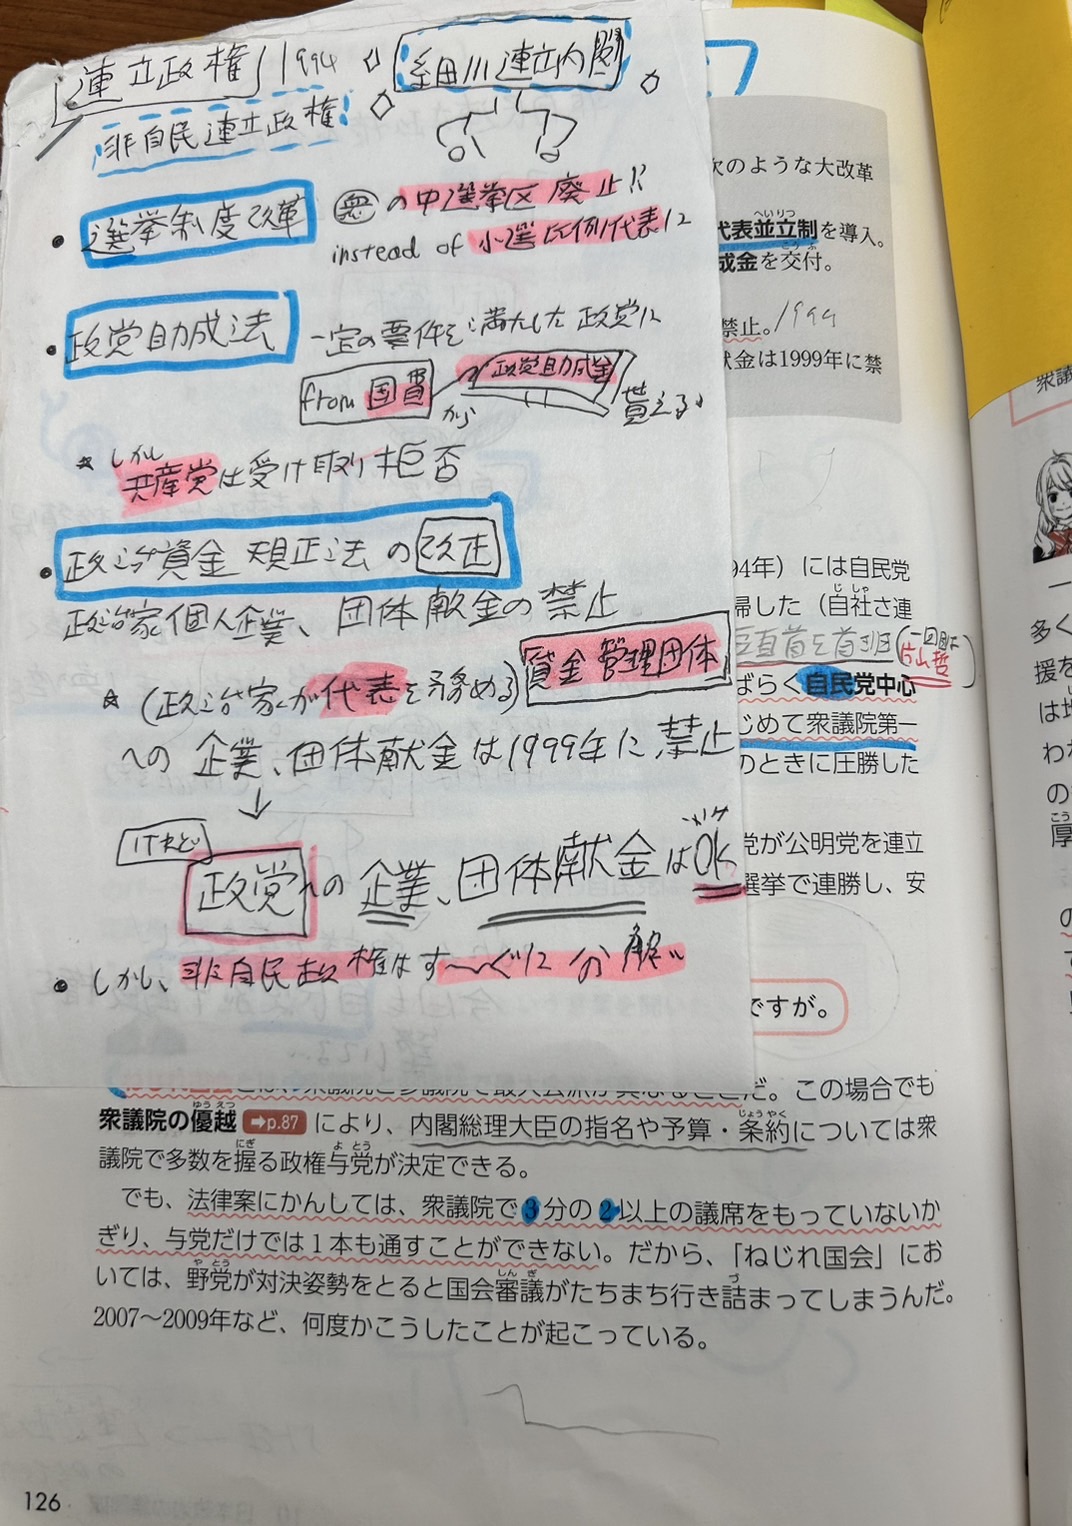 連立政権 1994
細川連立内閣
非自民連立政権
・選挙制度改革
悪の中選挙区廃止!!
instead of 小選比例代表に
・政党助成法
一定の要件を満たした政党に
from 国費 から 政党助成金 貰える。
★しかし
共産党は受け取り拒否
・政治資金規正法の改正
政治家個人企業、団体献金の禁止
★(政治家が代表を務める)資金管理団体
への企業、団体献金は1999年に禁止
↓
けれど
政党への企業、団体献金はOK
・しかし、非自民政権はす〜ぐに分解
次のような大改革
代表並立制を導入。
へいりつ
成金を交付。
こうふ
禁止。1999
献金は1999年に禁
94年)には自民党
帰した(自社さ連
じしゃ
首を首班(一回目は
片山哲)
ばらく自民党中心
じめて衆議院第一
のときに圧勝した
党が公明党を連立
選挙で連勝し、安
ですが。
だ。この場合でも
衆議院の優越 ➡p.87 により、内閣総理大臣の指名や予算・条約については衆
ゆうえつ
じょうやく
議院で多数を握る政権与党が決定できる。
にぎ
よとう
でも、法律案にかんしては、衆議院で3分の2以上の議席をもっていないか
ぎり、与党だけでは1本も通すことができない。だから、「ねじれ国会」にお
いては、野党が対決姿勢をとると国会審議がたちまち行き詰まってしまうんだ。
やとう
しんぎ
づ
2007〜2009年など、何度かこうしたことが起こっている。
126
衆議
一
多く
援を
は地
わね
の
厚
こう
の